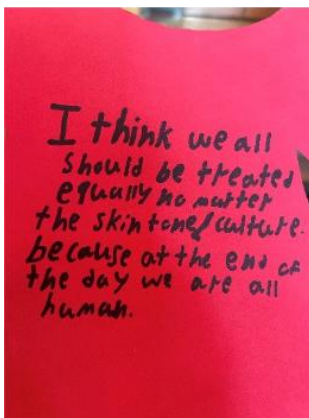 I think we all
should be treated
equally no matter
the skintone/culture.
because at the end of
the day we are all
human.